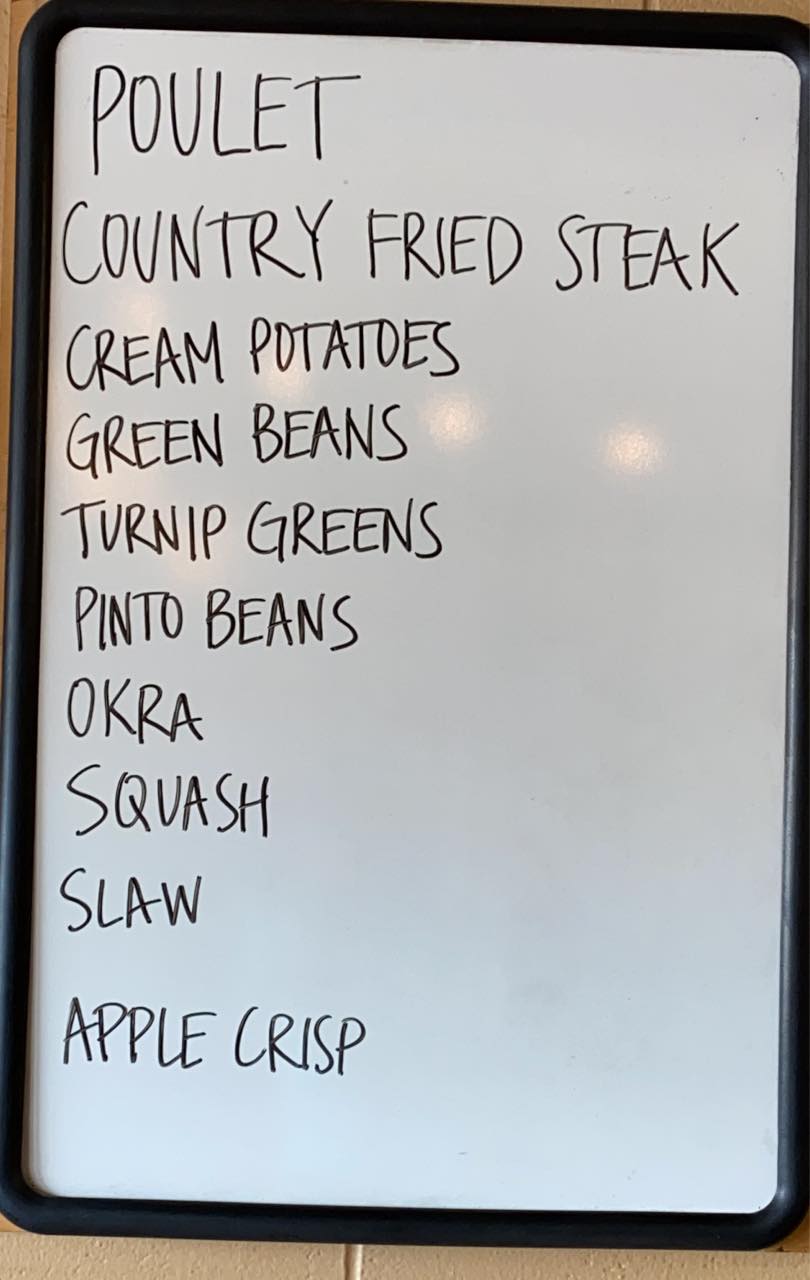 POULET
COUNTRY FRIED STEAK
CREAM POTATOES
GREEN BEANS
TURNIP GREENS
PINTO BEANS
OKRA
SQUASH
SLAW
APPLE CRISP